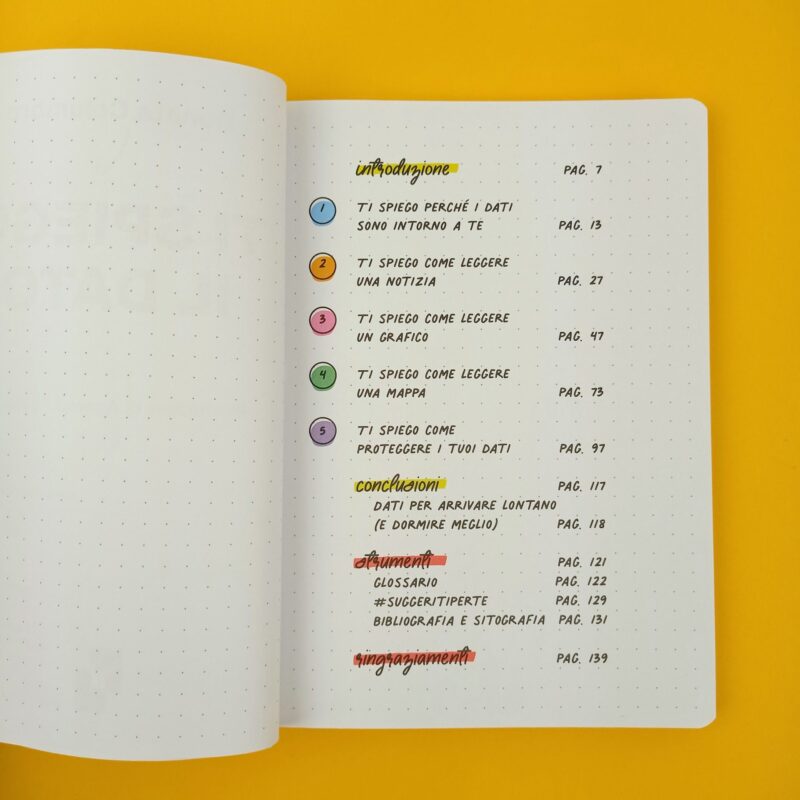 introduzione PAG. 7
1 TI SPIEGO PERCHÉ I DATI
SONO INTORNO A TE PAG. 13
2 TI SPIEGO COME LEGGERE
UNA NOTIZIA PAG. 27
3 TI SPIEGO COME LEGGERE
UN GRAFICO PAG. 47
4 TI SPIEGO COME LEGGERE
UNA MAPPA PAG. 73
5 TI SPIEGO COME
PROTEGGERE I TUOI DATI PAG. 97
conclusioni PAG. 117
DATI PER ARRIVARE LONTANO
(E DORMIRE MEGLIO) PAG. 118
strumenti PAG. 121
GLOSSARIO PAG. 122
#SUGGERITIPERTE PAG. 129
BIBLIOGRAFIA E SITOGRAFIA PAG. 131
ringraziamenti PAG. 139